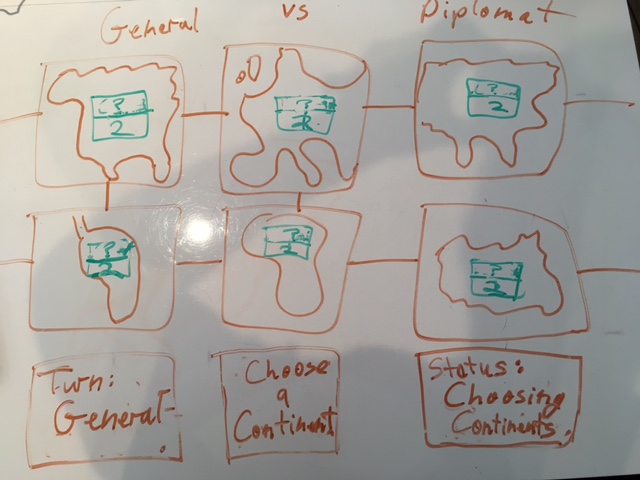 General vs Diplomat
?
2
?
2
?
2
?
2
?
2
?
2
Turn:
General
Choose
a
Continent
Status:
Choosing
Continents.